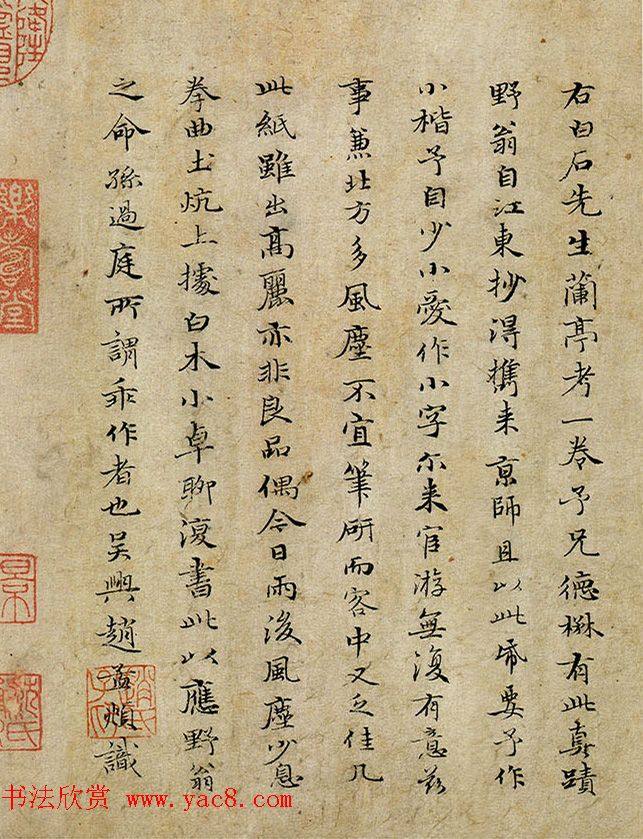 右白石先生蘭亭考一卷予兄德楙有此真蹟
野翁自江東抄得攜来京師且以此帋要予作
小楷予自少小愛作小字尔来宦游無復有意兹
事蕙北方多風塵不宜筆研而客中又乏佳几
此紙雖出髙麗亦非良品偶今日雨後風塵少息
拳曲土炕上據白木小卓聊復書此以應野翁
之命孫過庭所謂乖作者也吴興趙孟頫識
趙氏子昂
書法欣赏 www.yac8.com